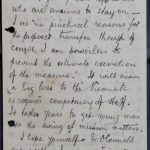 who are anxious to stay on—
I see no practical reasons for
the proposed transfer though of
course I am powerless to
prevent the ultimate execution
of the measure. It will mean
a big loss to the
as regards competency of Staff.
It takes years to get young men
into the of mission matters.
I hope yourself & O'Connell